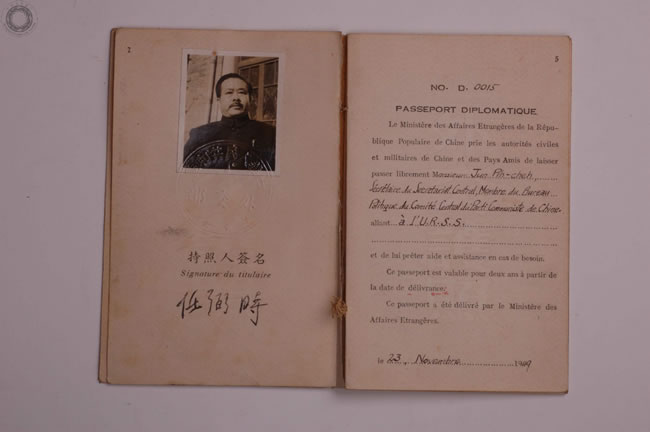 2
持照人签名
Signature du titulaire
任弼時
5
NO. D. 0015
PASSEPORT DIPLOMATIQUE
Le Ministère des Affaires Etrangères de la Répu-
blique Populaire de Chine prie les autorités civiles
et militaires de Chine et des Pays Amis de laisser
passer librement Monsieur Jun Pih-cheh,
Secrétaire du Secretariat Central, Membre du Bureau
Politique du Comité Central du Parti Communiste de Chine
allant à l'U.R.S.S.
et de lui prêter aide et assistance en cas de besoin.
Ce passeport est valable pour deux ans à partir de
la date de délivrance.
Ce passeport a été délivré par le Ministère des
Affaires Etrangères.
le 23, Novembre 1949